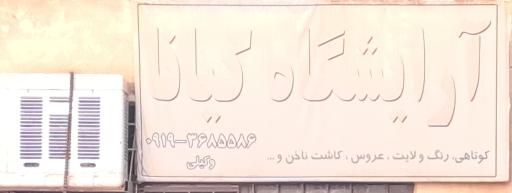 آرایشگاه کیانا
کوتاهی، رنگ و لایت، عروس، کاشت ناخن و ...
۰۹۱۹-۳۶۸۵۵۸۶
وکیلی